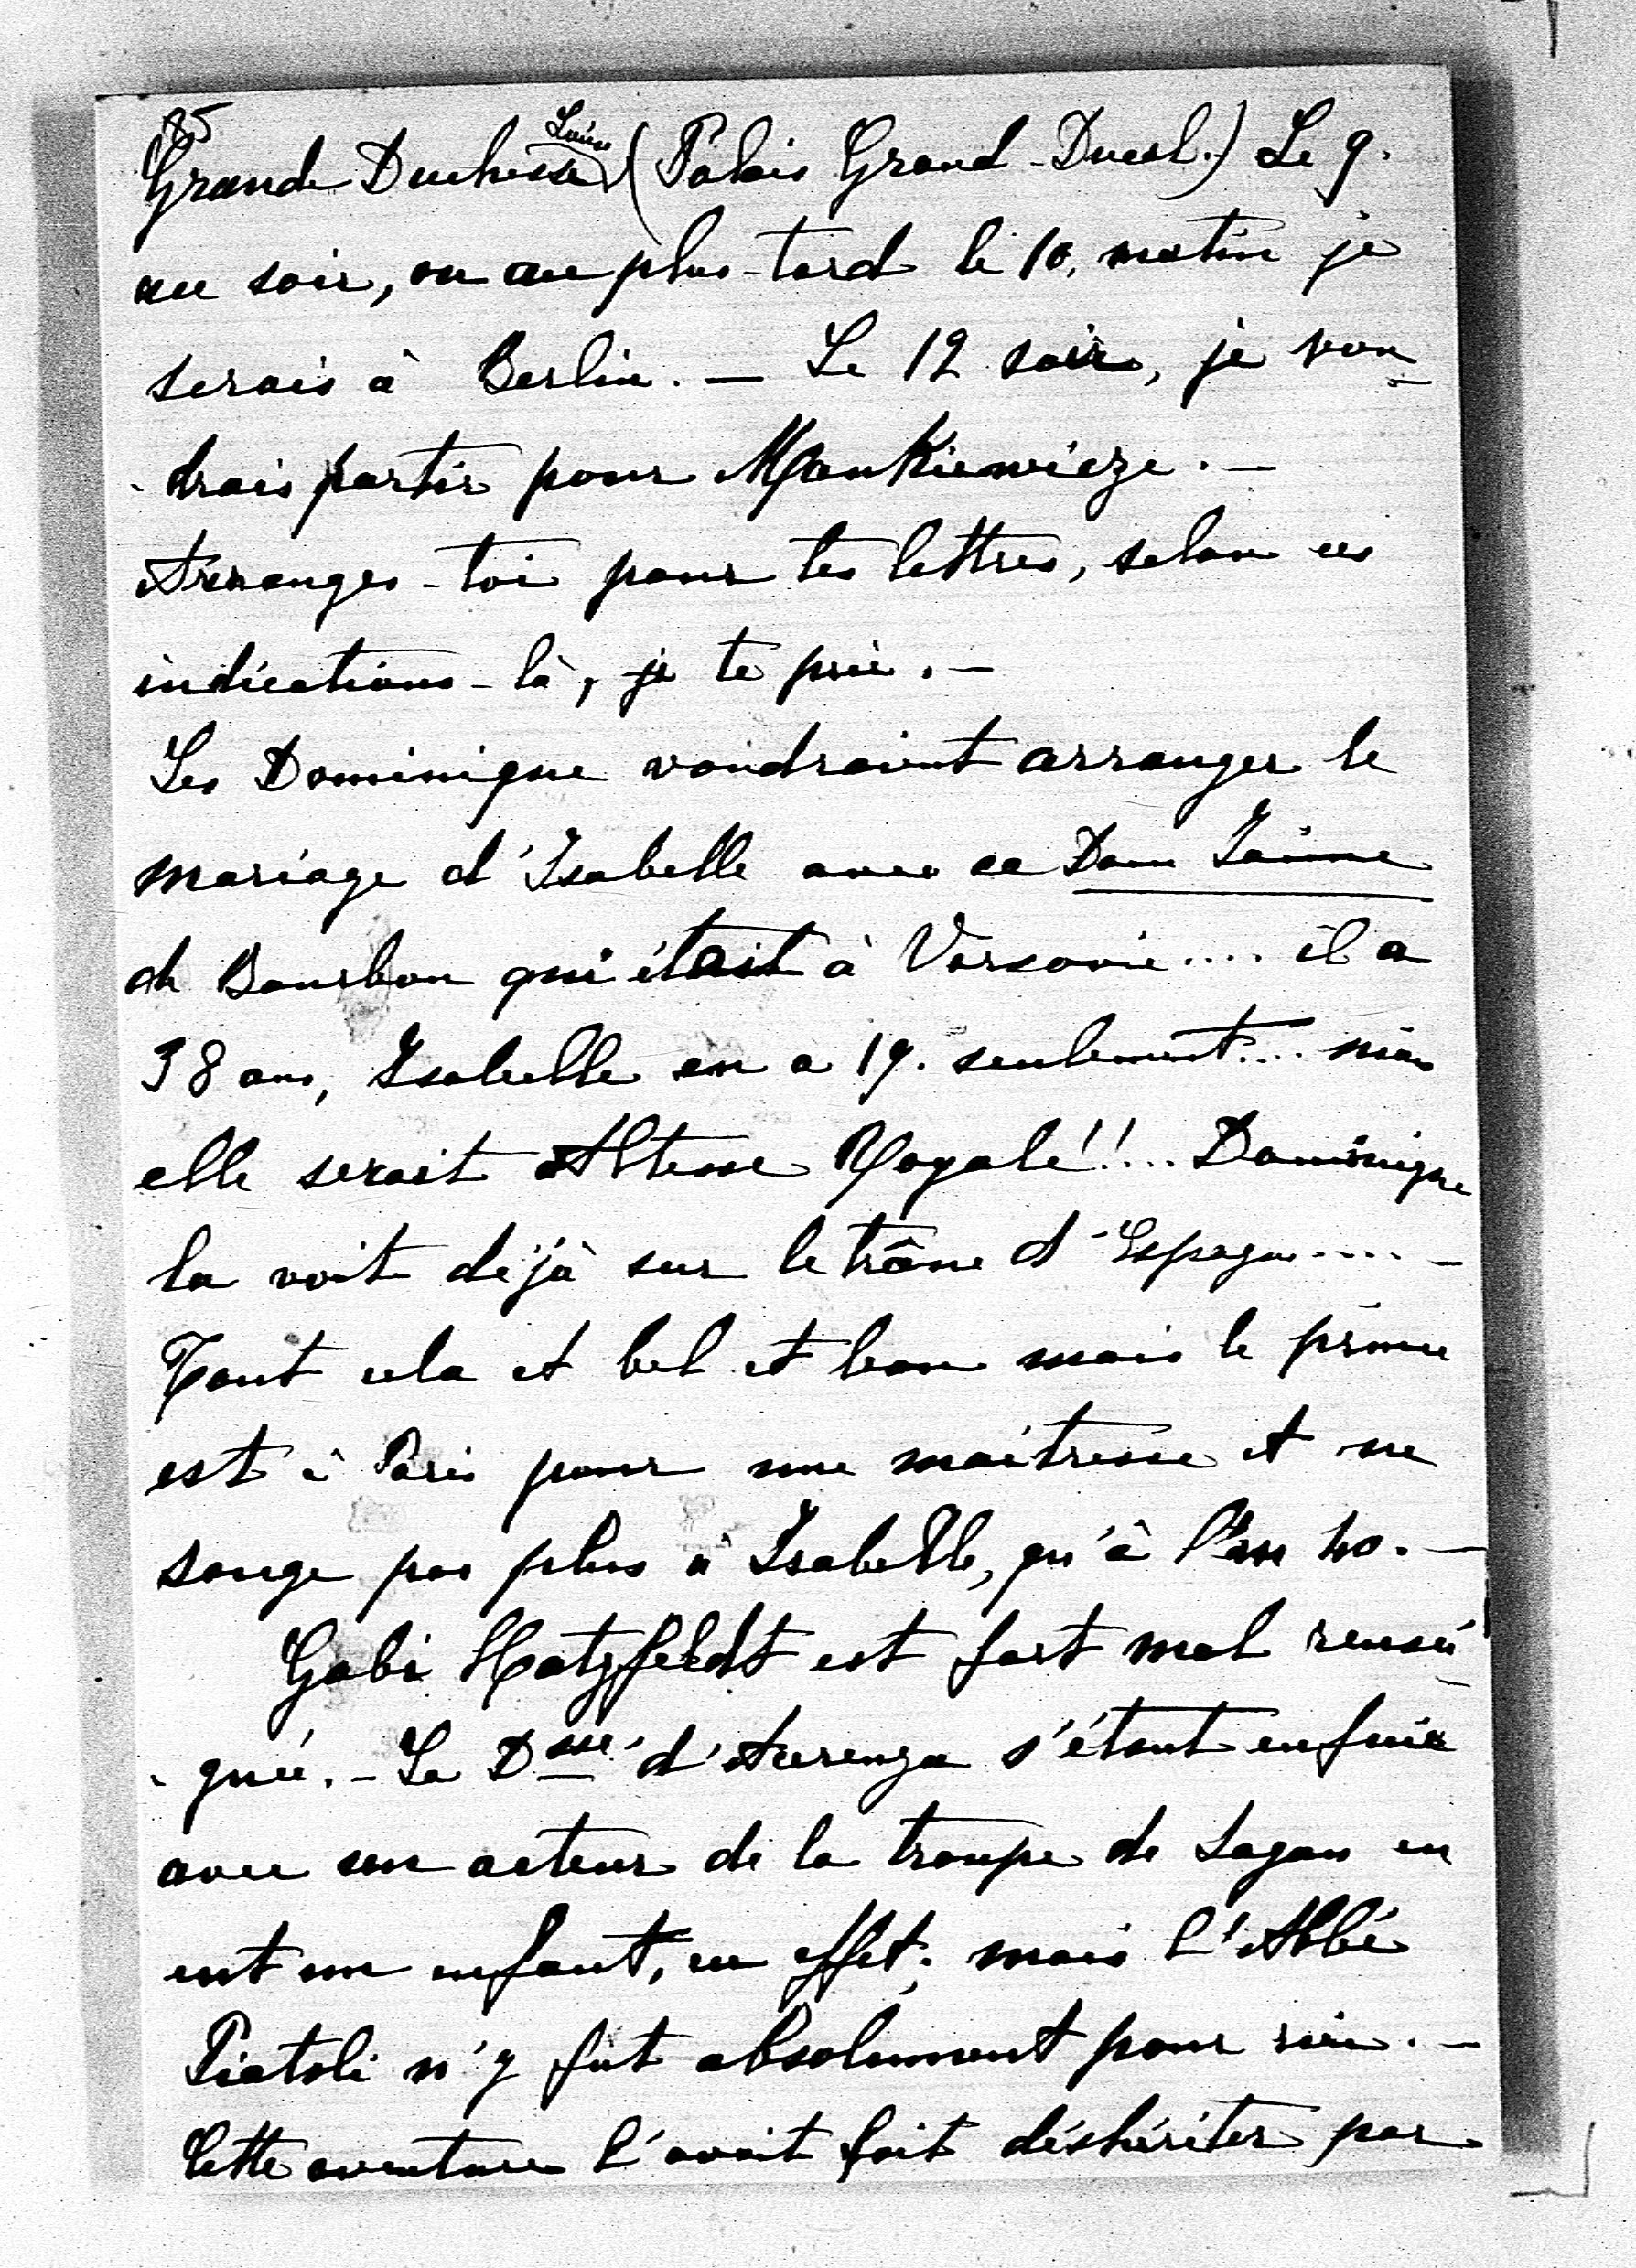 Grande Duchesse Louise (Palais Grand-Ducal.) Le 9.
au soir, ou au plus-tard le 10. matin je
serais à Berlin. — Le 12 soir, je vou-
-drais partir pour Mankiewicze. —
Arranges-toi pour tes lettres, selon ces
indications-là, je te prie. —
Les Dominique voudraient arranger le
mariage d'Isabelle avec ce Dom Jaime
de Bourbon qui était à Varsovie.... il a
38 ans, Isabelle en a 19. seulement.... mais
elle serait Altesse Royale!!... Dominique
la voit déjà sur le trône d'Espagne.... —
Tout cela et bel et bon mais le prince
est à Paris pour une maîtresse et ne
songe pas plus à Isabelle, qu'à l'an 40. —
Gabi Hatzfeldt est fort mal rensei-
-gnée. — La Dsse. d'Acerenza s'étant enfuie
avec un acteur de la troupe de Sagan en
eut un enfant, en effet; mais l'Abbé
Piatoli n'y fut absolument pour rien. —
Cette aventure l'avait fait déshériter par